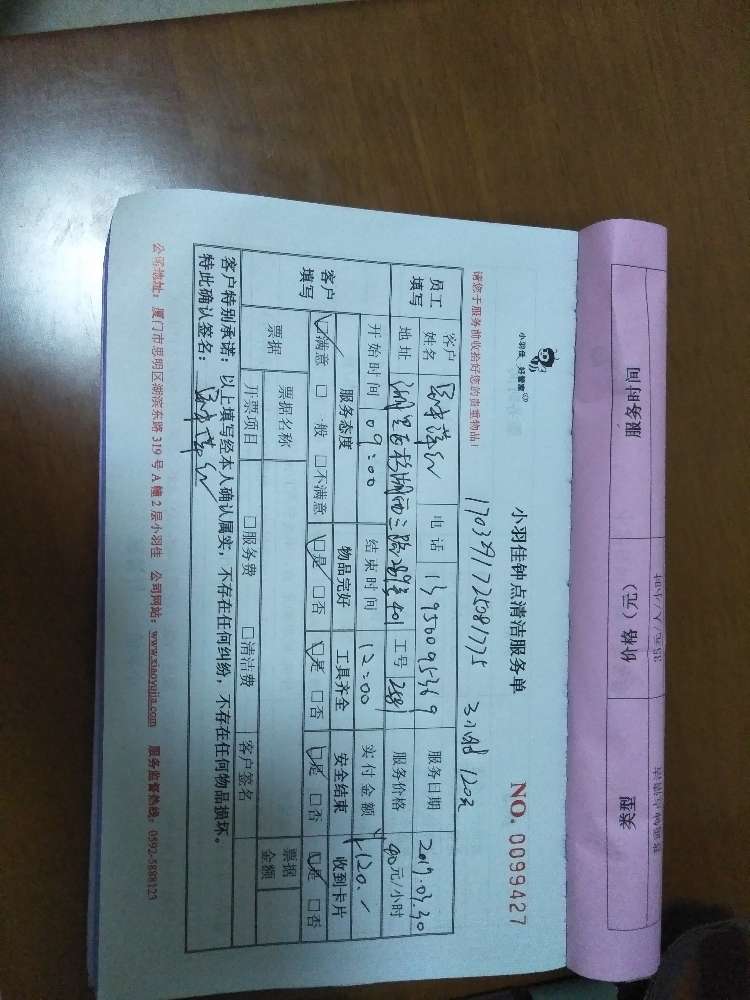 服务时间 价格（元） 类型
35元/人/小时 普通钟点清洁
小羽佳 好管家
小羽佳钟点清洁服务单 NO. 0099427
请您于服务前收拾好您的贵重物品！
3小时 120元
员工填写 客户姓名 电话 服务日期 2019.03.30
地址 工号 服务价格 40元/小时
开始时间 09:00 结束时间 12:00 实付金额 ¥120.
客户填写 服务态度 物品完好 工具齐全 安全结束 收到卡片
☑满意 □一般 □不满意 ☑是 □否 ☑是 □否 ☑是 □否 ☑是 □否
票据 票据名称 票据金额
开票项目 □服务费 □清洁费 客户签名
客户特别承诺：以上填写经本人确认属实，不存在任何纠纷，不存在任何物品损坏。
特此确认签名：
公司地址：厦门市思明区湖滨东路 319 号 A 幢 2 层小羽佳 公司网站：www.xiaoyujia.com 服务监督热线：0592-5888123